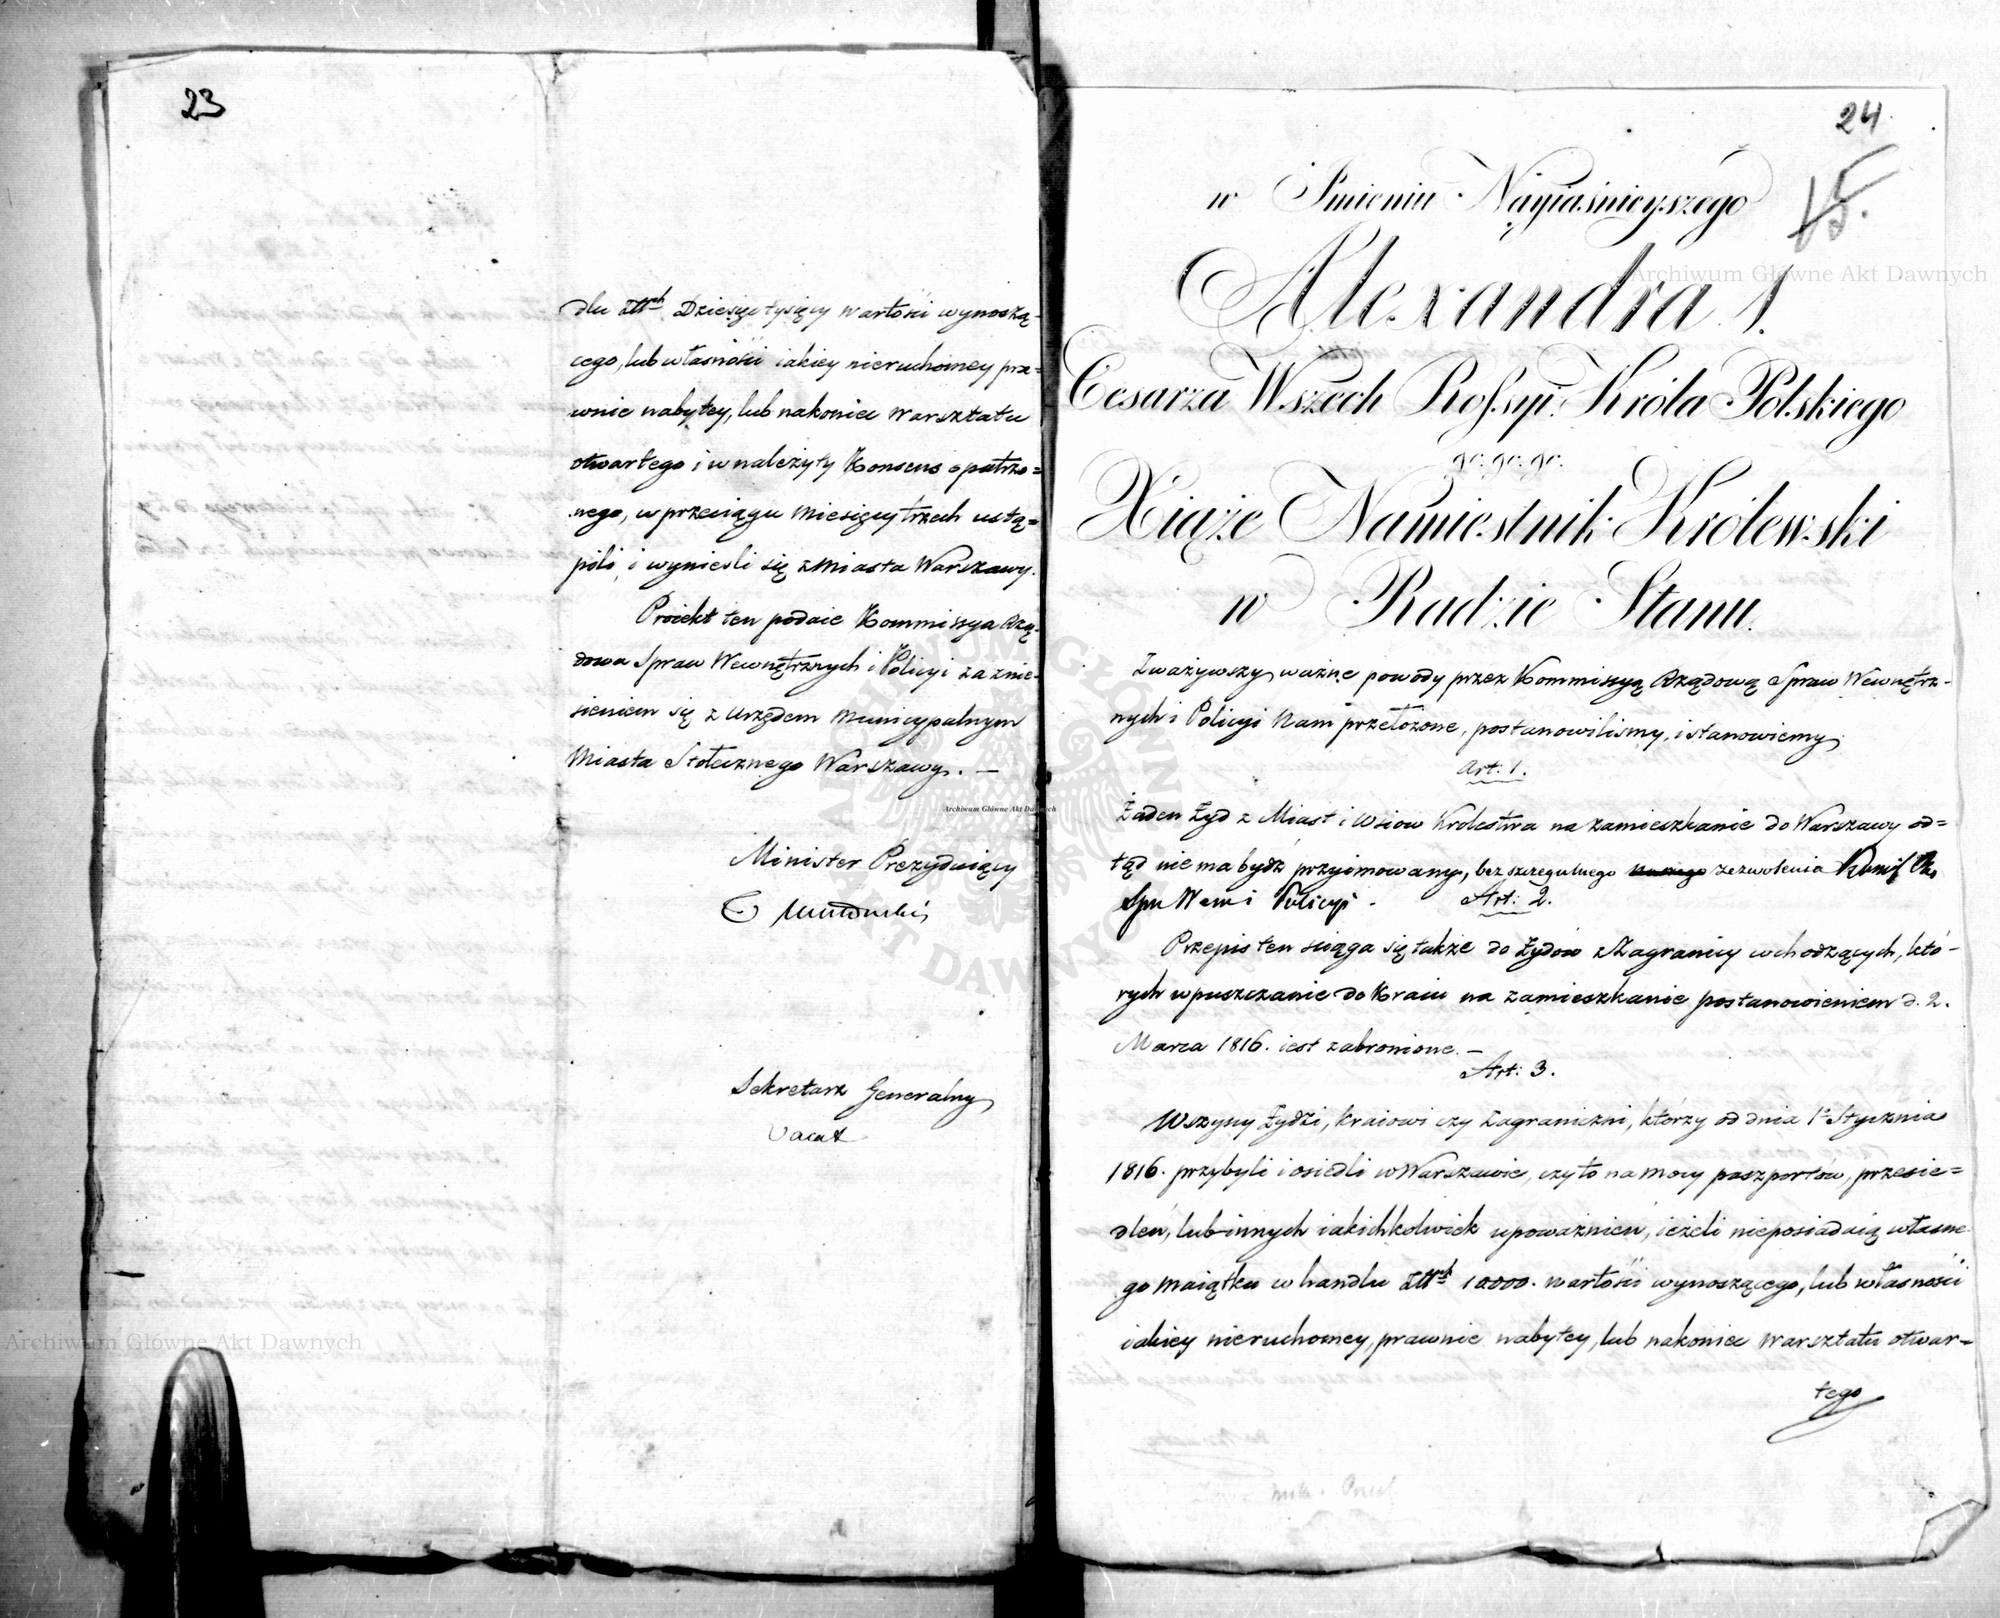 23
dlu Złł^ch Dziesięć tysięcy wartości wynoszą-
cego, lub własności iakiey nieruchomey pra=
wnie nabytey, lub nakoniec Warsztatu
otwartego i w należyty Konsens opatrzo=
nego, w przeciągu Miesięcy trzech ustą=
pili i wynieśli się z Miasta Warszawy.
Proiekt ten podaie Kommissya Rzą-
dowa Spraw Wewnętrznych i Policyi za znie-
sieniem się z Urzędem Municypalnym
Miasta Stołecznego Warszawy. —
Minister Prezyduiący
Sekretarz Generalny
Vacat
24
15.
w Imieniu Nayiaśnieyszego
Alexandra I.
Cesarza Wszech Rossyi, Króla Polskiego
&c. &c. &c.
Xiąże Namiestnik Królewski
w Radzie Stanu.
Zważywszy ważne powody przez Kommissyą Rządową Spraw Wewnętrz-
nych i Policyi Nam przełożone, postanowiliśmy, i stanowiemy,
Art: 1.
Żaden Żyd z Miast i Wsiow Krolestwa na zamieszkanie do Warszawy od=
tąd nie ma bydź przyimowany, bez szczegulnego zezwolenia Komis Rz.
Spr Wew i Policyi.
Art: 2.
Przepis ten ściąga się także do Żydów z Zagranicy wchodzących, któ-
rych wpuszczanie do Kraiu na zamieszkanie postanowieniem d. 2.
Marca 1816. iest zabronione. —
Art: 3.
Wszyscy Żydzi, Kraiowi czy Zagraniczni, którzy od dnia 1° Stycznia
1816. przybyli i osiedli w Warszawie, czy to na mocy paszportów, przesie=
dleń, lub innych iakichkolwiek upoważnień, ieżeli nieposiadaią własne
go Maiątku w handlu Złł^ch 10000. wartości wynoszącego, lub własności
iakiey nieruchomey, prawnie nabytey, lub nakoniec Warsztatu otwar=
tego
Archiwum Główne Akt Dawnych
Archiwum Główne Akt Dawnych
Archiwum Główne Akt Dawnych
ARCHIWUM GŁÓWNE AKT DAWNYCH